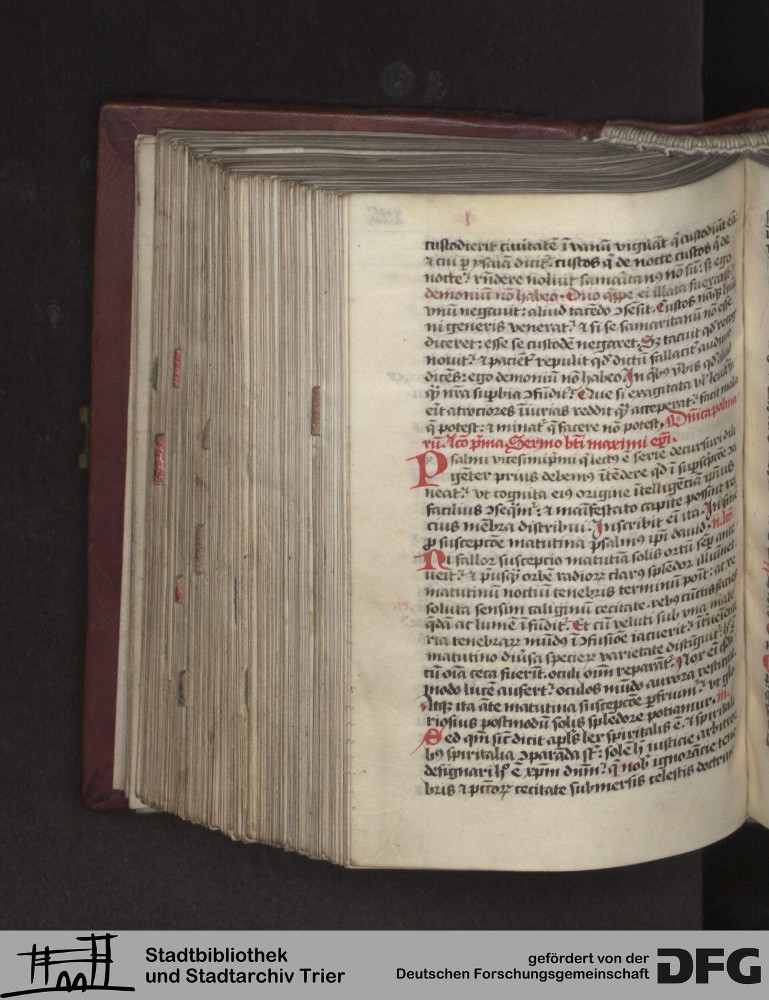 custodierit ciuitatē ī vanū vigilāt q̄ custodiūt eā
⁊ cui ꝑ ysaiā dicit᷑ custos q̄ de nocte custos q̄ de
nocte᷑ rn̄dere noluit samaritanꝰ nō sū: sꝫ ego
demoniū nō habeo. Duo q̄ppe ei illata fuerāt
vnū negauit: aliud tacēdo ɔsēsit. Custos naqꝫ
ni generis venerat᷑ ⁊ si se samaritanū nō esse
diceret: esse se custodē negaret. Sꝫ tacuit qd̓ recog
nouit᷑ ⁊ paciēt᷑ repulit qd̓ dictū fallacit᷑ audiuit
dicēs: ego demoniū nō habeo. In qͥbꝰ v̓bis qd̓
nr̄a suꝑbia ɔfūdit᷑. Que si exagitata vl̓ leuit᷑
eīt atrociores īiurias reddit qͣ acceperat᷑ facit mala
q̄ potest: ⁊ minat᷑ q̄ facere nō potest. Dn̄ica palma
rū. lcō pͥma. Sermo bt̄i maximi ep̄i.
Psalmi vicesimipͥmi q̄ lectꝰ ē serie decursuri
gēter priꝰ debemꝰ ītēdere qd̓ ī suꝑscͥptōe
neat᷑: vt cognita eiꝰ origine ītelligētia ip̄ius
facilius ɔseqm̄᷑: ⁊ manifestato capite possint
cius mēbra distribui. Inscribit᷑ eī ita. In fine
ꝓ susceptōe matutina psalmꝰ ip̄i dauid. ii. lc̄o
Ni fallor susceptio matutīa solis ortū seꝑ ante
ueit᷑: ⁊ pͥusqͣ orbē radioꝝ clarꝰ splēdor illuīet᷑
matutinū noctiū tenebris terminū poīt: ac re
soluta sensim caliginū cecitate. rebꝰ cūctis facies
qͣdā ac lumē īfūdit᷑. Et cū veluti sub vna mate
ria tenebraꝝ mūdꝰ ī ɔfusiōe iacuerit:
matutino diūsa specieꝝ varietate distīguit᷑:
tū oīa ceca fuerīt. oculi oīm reparāt᷑. Nox eī
mͦdo lucē aufert᷑: oculos mūdo aurora restituit.
Atqꝫ ita āte matutina susceptōe ꝑfruim᷑: vt glo
riosius postmodū solis splēdore potiamur. iii.
Sed qm̄ sic̄ dicit apl̓s lex spiritalis ē: ⁊ spiritali
bꝰ spiritalia ɔparāda st̄: sole hͨ iusticie arbitror
designari hͨ ē xp̄m dn̄m᷑. q̄ nob̓ ignorācie tene
bris ⁊ pctōꝝ cecitate submersis celestis doctrine
Stadtbibliothek
und Stadtarchiv Trier
gefördert von der
Deutschen Forschungsgemeinschaft
DFG